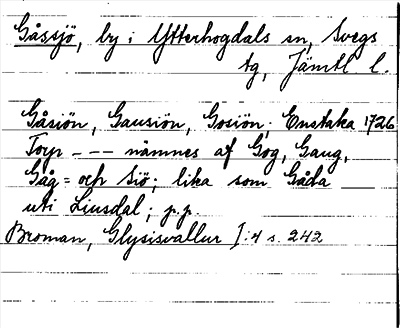 Gåssjö, by i Ytterhogdals sn, Svegs
tg, Jämtl l.
Gåsiön, Gausiön, Gosiön; Enstaka 1726
Torp --- nämnes af Gog, Gaug,
Gåg = och siö; lika som Gåda ___
uti Liusdal; p.p.
Broman, Glysisvallur I:4 s. 242